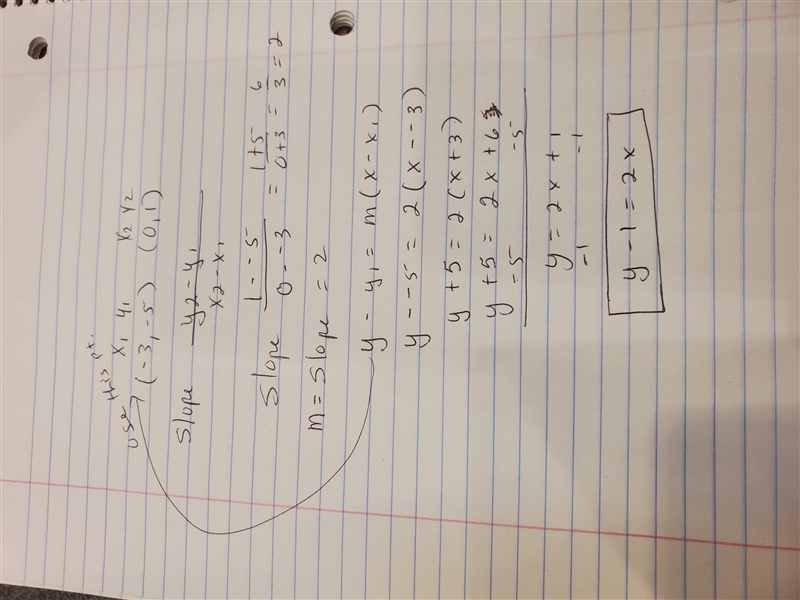 use this pt.
x1 y1 x2 y2
(-3, -5) (0, 1)
Slope y2 - y1 / x2 - x1
Slope 1 - -5 / 0 - -3 = 1+5 / 0+3 = 6 / 3 = 2
m = Slope = 2
y - y1 = m(x - x1)
y - -5 = 2(x - -3)
y + 5 = 2(x+3)
y + 5 = 2x + 6
-5 -5
y = 2x + 1
-1 -1
y - 1 = 2x